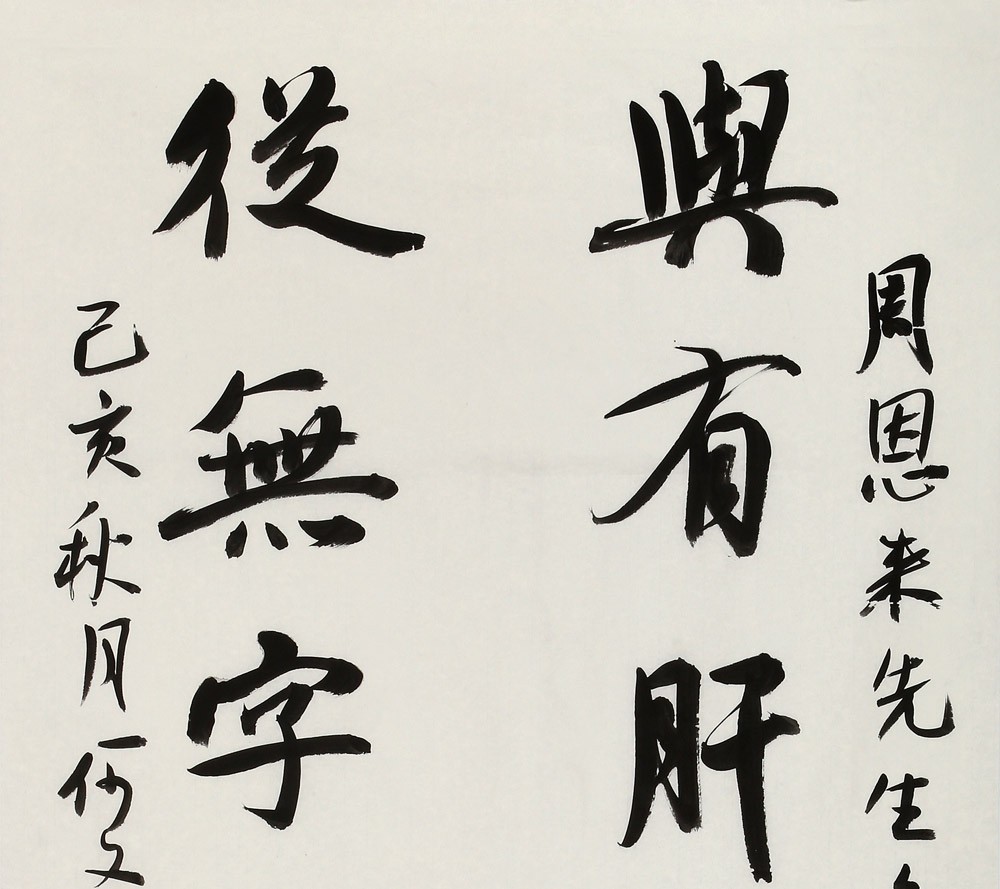 周恩来先生
與有肝
從無字
己亥秋月何文